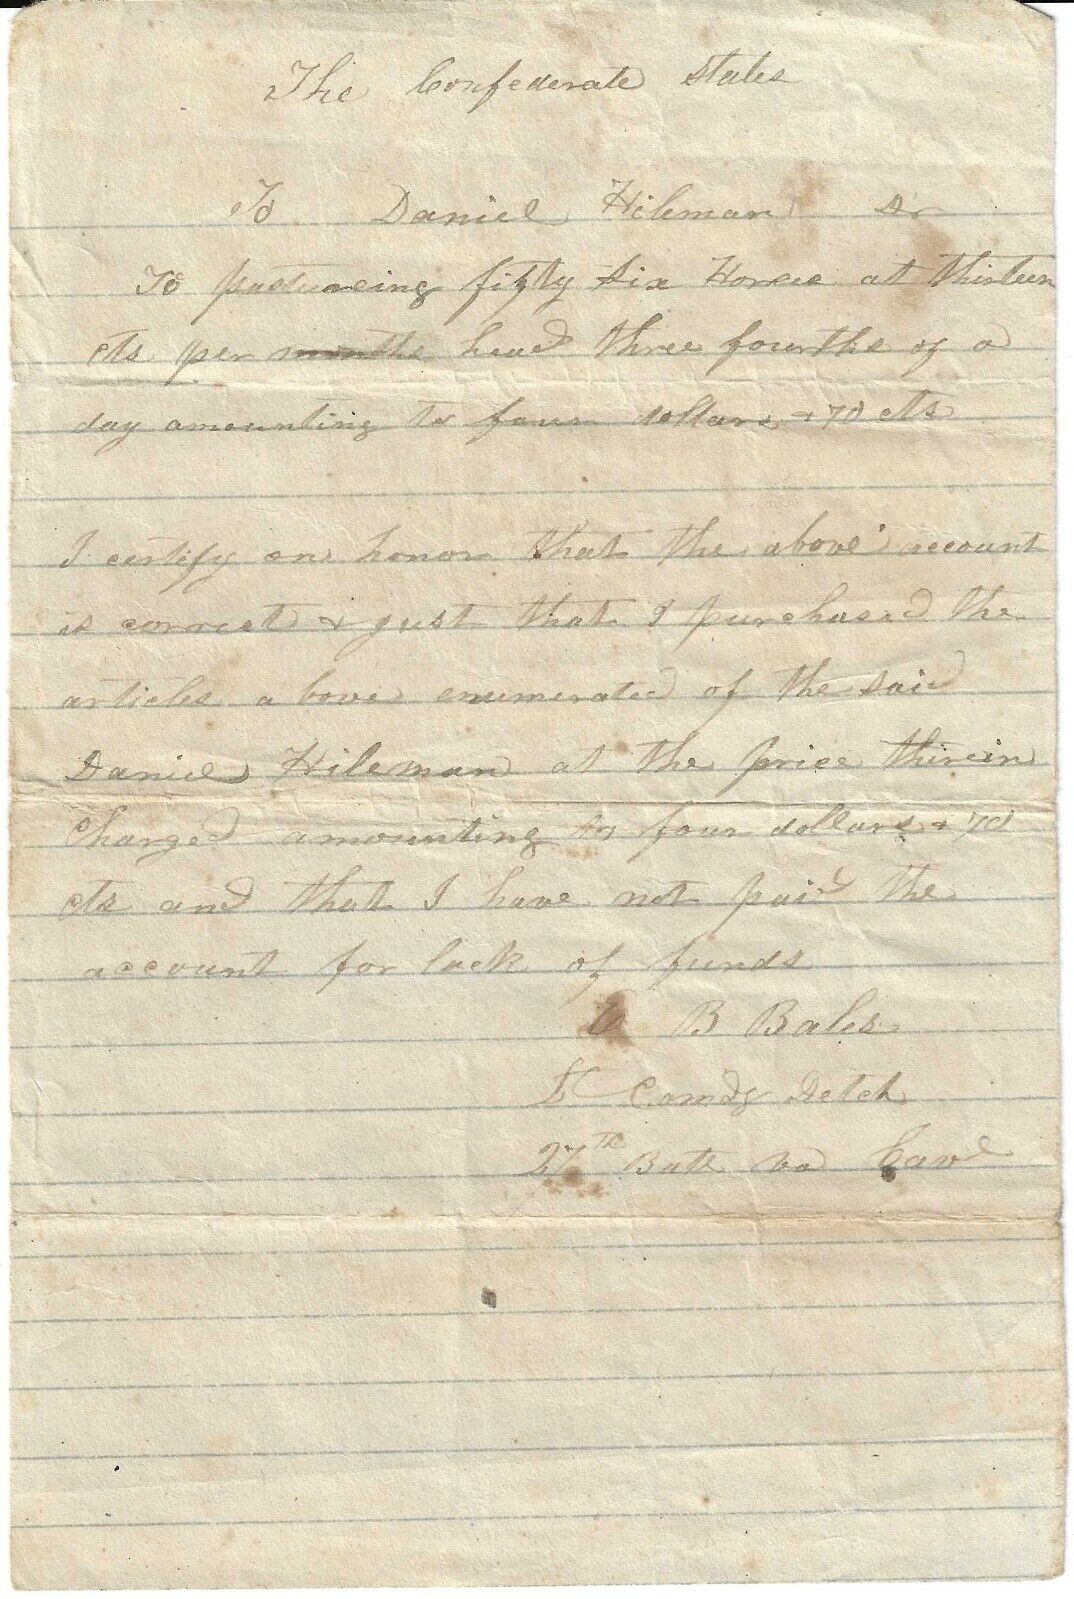 The Confederate States
To Daniel Hileman Dr
To pastureing fifty six Horses at thirteen
cts per months head three fourths of a
day amounting to four dollars & 70 cts
I certify on honor that the above account
is correct & just that I purchased the
articles above enumerated of the said
Daniel Hileman at the price therein
charged amounting to four dollars & 70
cts and that I have not paid the
account for lack of funds
B Bales
Lt Comdg Detch
27th Batt va Cavl